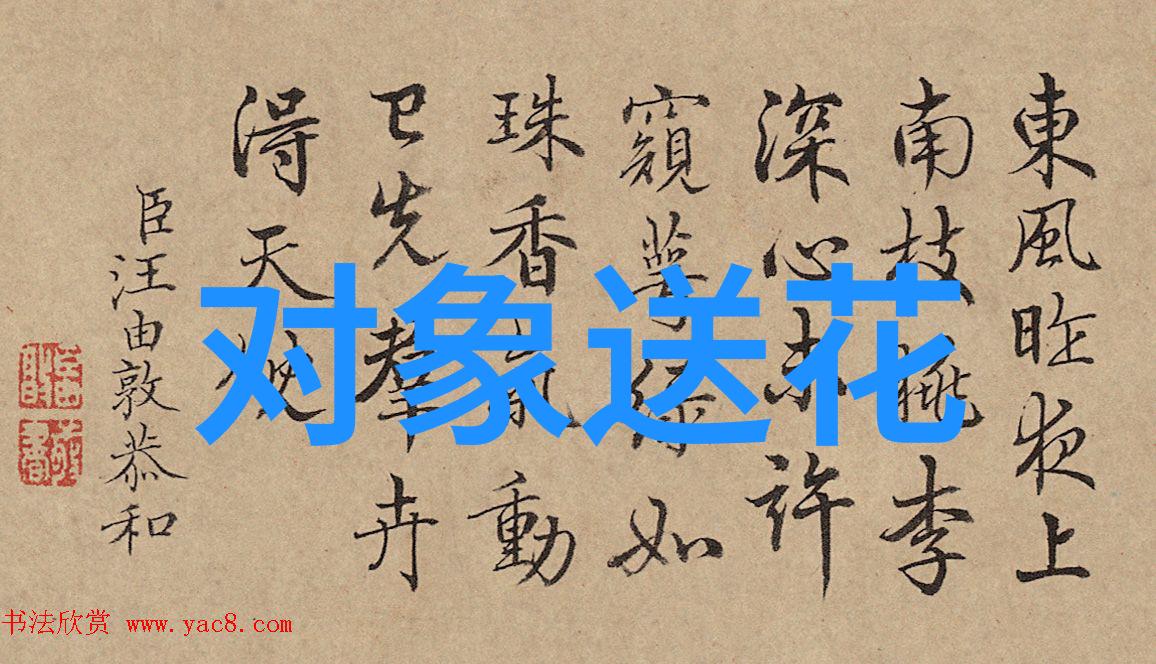 東風昨夜上
南枝桃李
深心未許
窺萼綠如
珠香氣動
已先羣卉
得天
臣汪由敦恭和
对象送花
书法欣赏 www.yac8.com